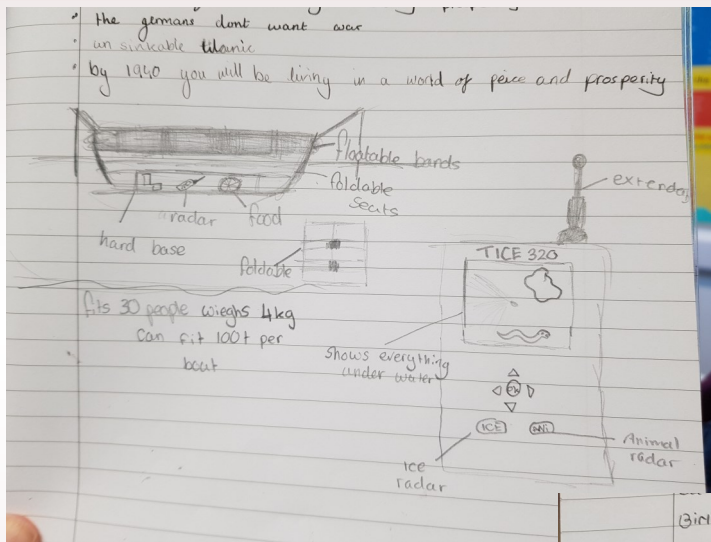 the germans dont want war
un sinkable titanic
by 1940 you will be living in a world of peice and prosperity
floatable bands
foldable
seats
radar
food
hard base
foldable
extenda
TICE 320
fits 30 people wieghs 4kg
can fit 100t per
boat
shows everything
under water
ICE
ANI
Animal
radar
ice
radar
Birt